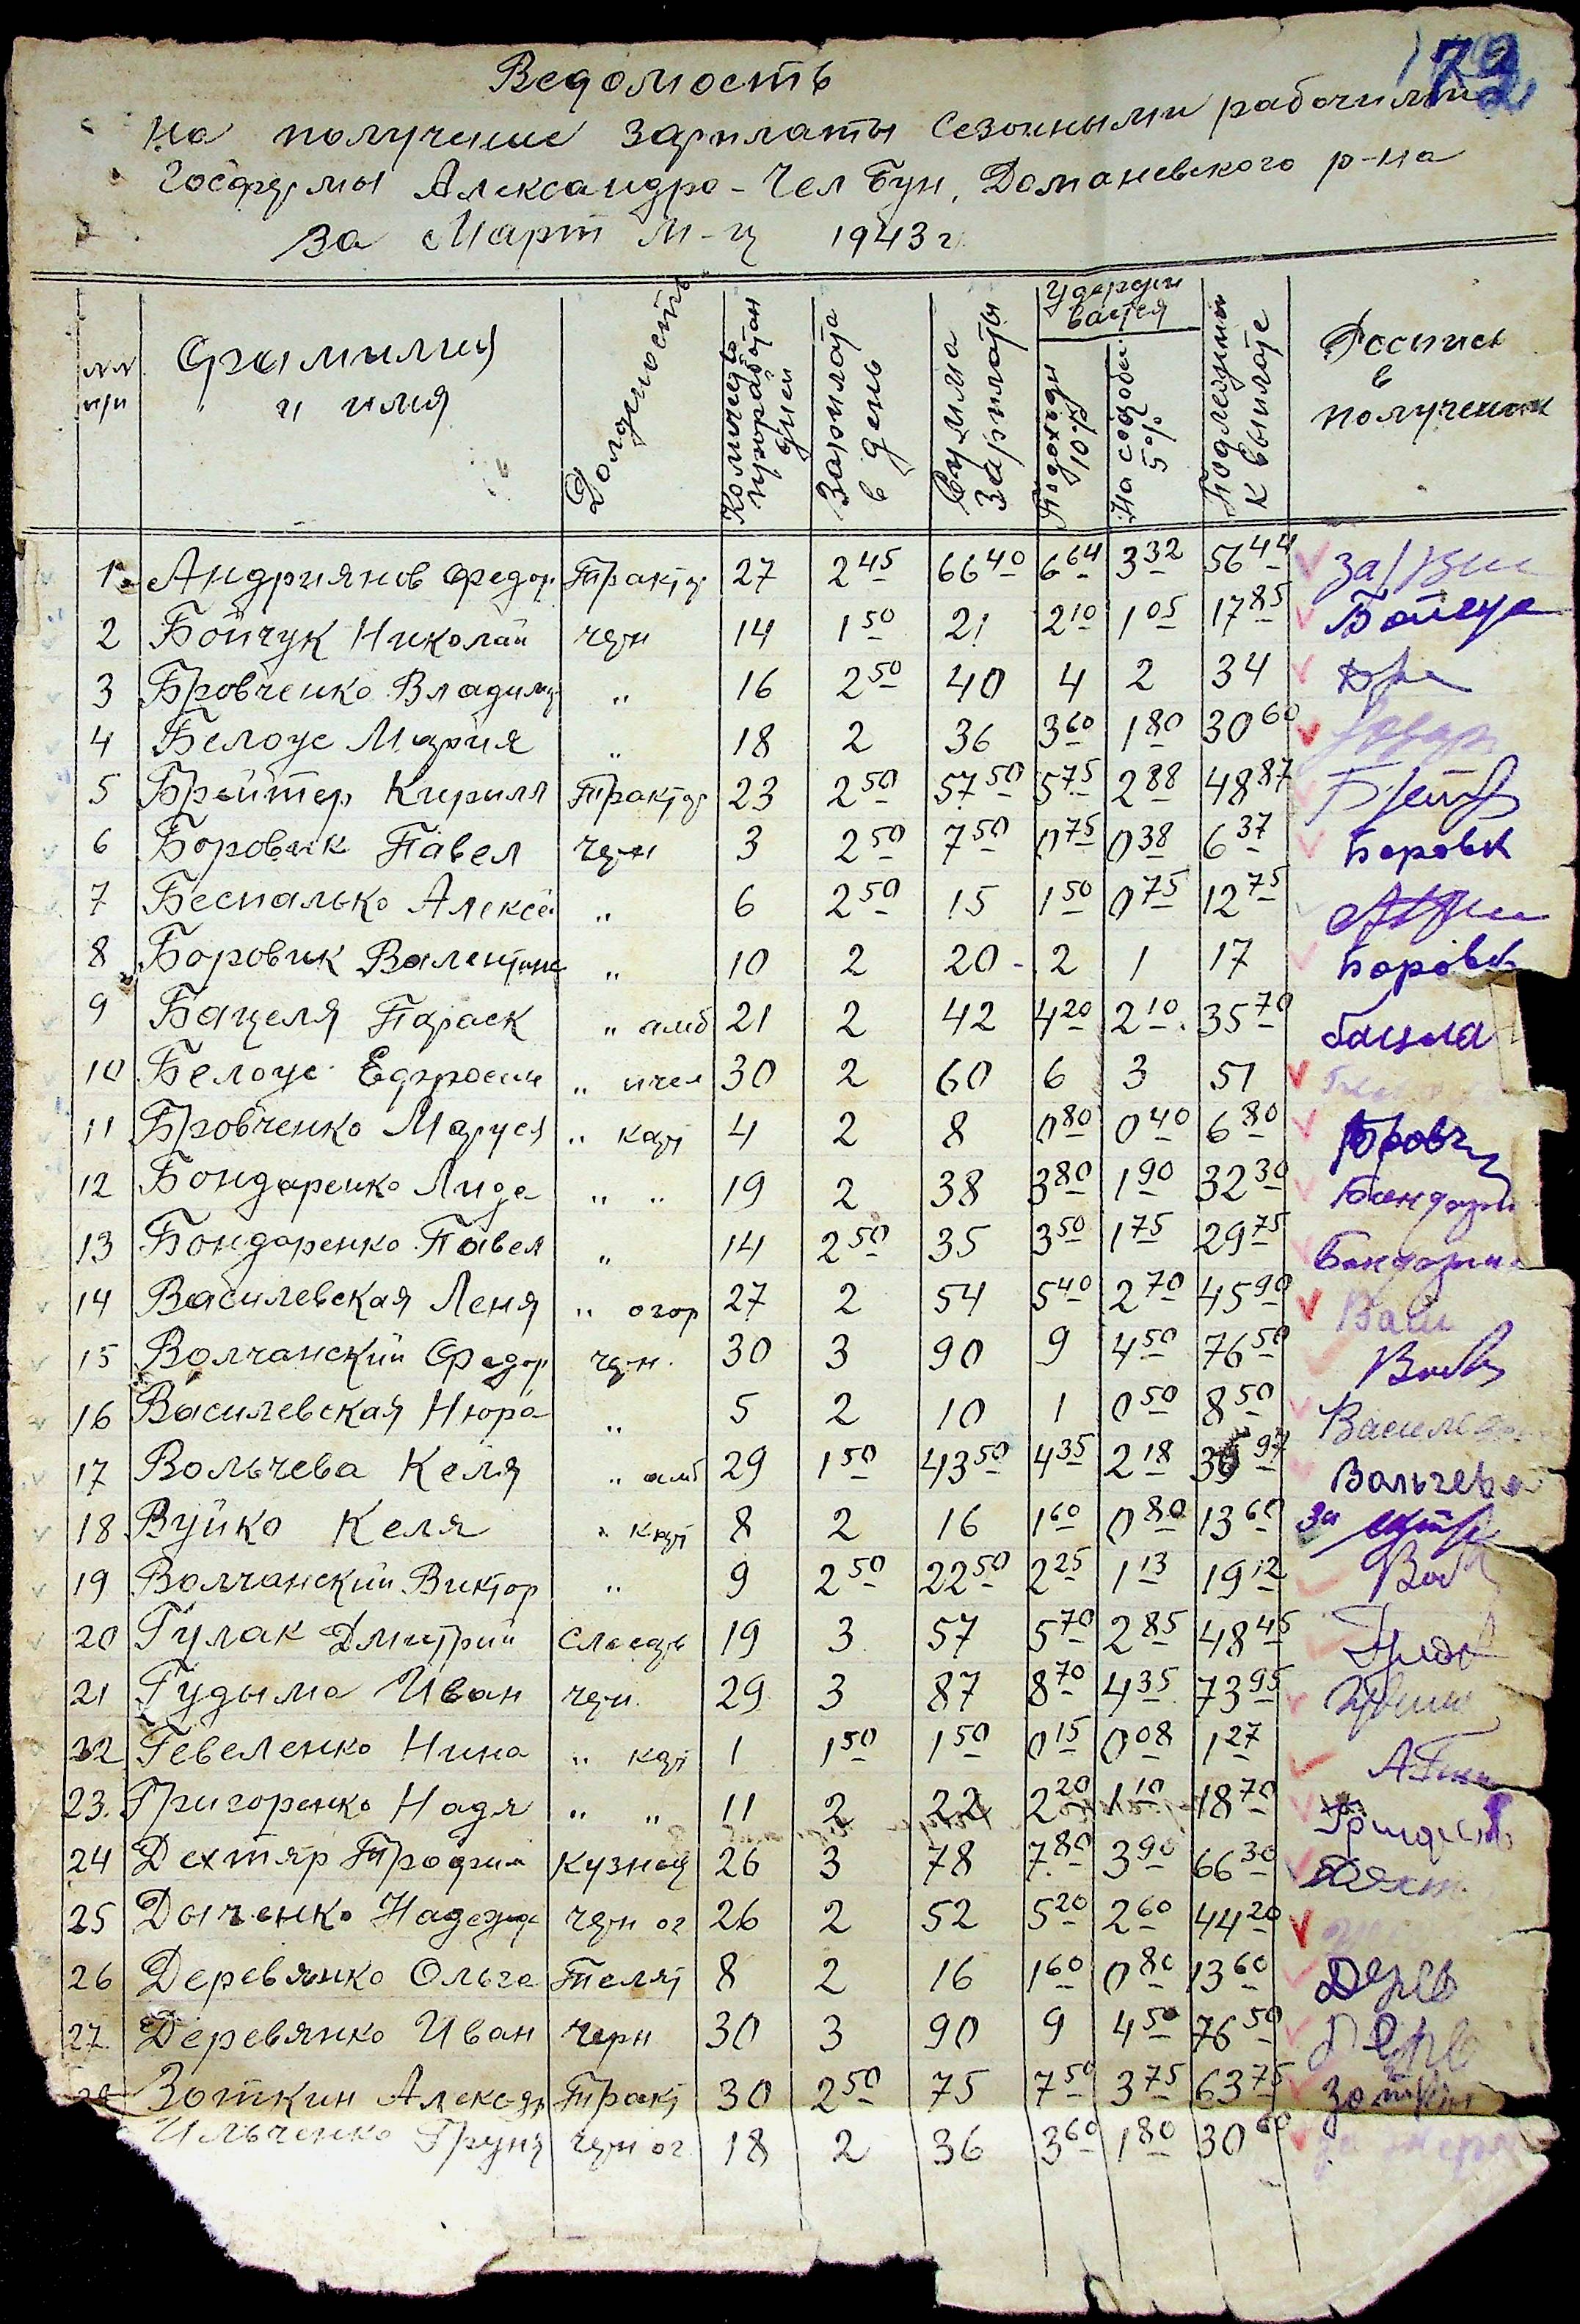 72
Ведомость
на получение зарплаты сезонными рабочими
Госфермы Александро-Чел Бун, Доманевского р-на
За Март м-ц 1943 г
№№ п/п
Фамилия и имя
Должность
Количество проработан дней
Зарплата в день
Сумма Зарплаты
Удержи вается
Подоходный 10%
На содобес. 5%
Подлежит к выплате
Роспись в получении
1. Андриянов Федор Трактор 27 2 45 66 40 6 64 3 32 56 44
2 Бойчук Николай черн 14 1 50 21 2 10 1 05 17 85 Бойчук
3 Бровченко Владимир " 16 2 50 40 4 2 34
4 Белоус Мария " 18 2 36 3 60 1 80 30 60
5 Брейтер Кирилл Трактор 23 2 50 57 50 5 75 2 88 48 87
6 Боровик Павел черн 3 2 50 7 50 0 75 0 38 6 37 Боровк
7 Беспалько Алексе " 6 2 50 15 1 50 0 75 12 75
8 Боровик Валентина " 10 2 20 - 2 1 17 Боровк
9 Бацеля Параск " амб 21 2 42 4 20 2 10 35 70 бацела
10 Белоус Ефросин " пчел 30 2 60 6 3 51
11 Бровченко Маруся " карт 4 2 8 0 80 0 40 6 80 Бровч
12 Бондаренко Лида " " 19 2 38 3 80 1 90 32 30 Бондарен
13 Бондаренко Павел " 14 2 50 35 3 50 1 75 29 75 Бондарен
14 Василевская Леня " огор 27 2 54 5 40 2 70 45 90 Васи
15 Волчанский Федор черн. 30 3 90 9 4 50 76 50
16 Василевская Нюра " 5 2 10 1 0 50 8 50 Василевск
17 Вольчева Келя " амб 29 1 50 43 50 4 35 2 18 36 97 Вальчева
18 Вуйко Келя " карт 8 2 16 1 60 0 80 13 60 За
19 Волчанский Виктор " 9 2 50 22 50 2 25 1 13 19 12
20 Гулак Дмитрий слесарь 19 3 57 5 70 2 85 48 45
21 Гудыма Иван черн. 29 3 87 8 70 4 35 73 95
22 Гевеленко Нина " карт 1 1 50 1 50 0 15 0 08 1 27
23. Григоренко Надя " " 11 2 22 2 20 1 10 18 70
24 Дехтяр Трофим кузнец 26 3 78 7 80 3 90 66 30 Дехт
25 Дьяченко Надежда черн ог 26 2 52 5 20 2 60 44 20
26 Деревянко Ольга Телят 8 2 16 1 60 0 80 13 60 Дерев
27. Деревянко Иван черн 30 3 90 9 4 50 76 50 Дерев
28 Зоткин Александр Тракт 30 2 50 75 7 50 3 75 63 75 Зоткин
Ильченко Груня черн ог. 18 2 36 3 60 1 80 30 60